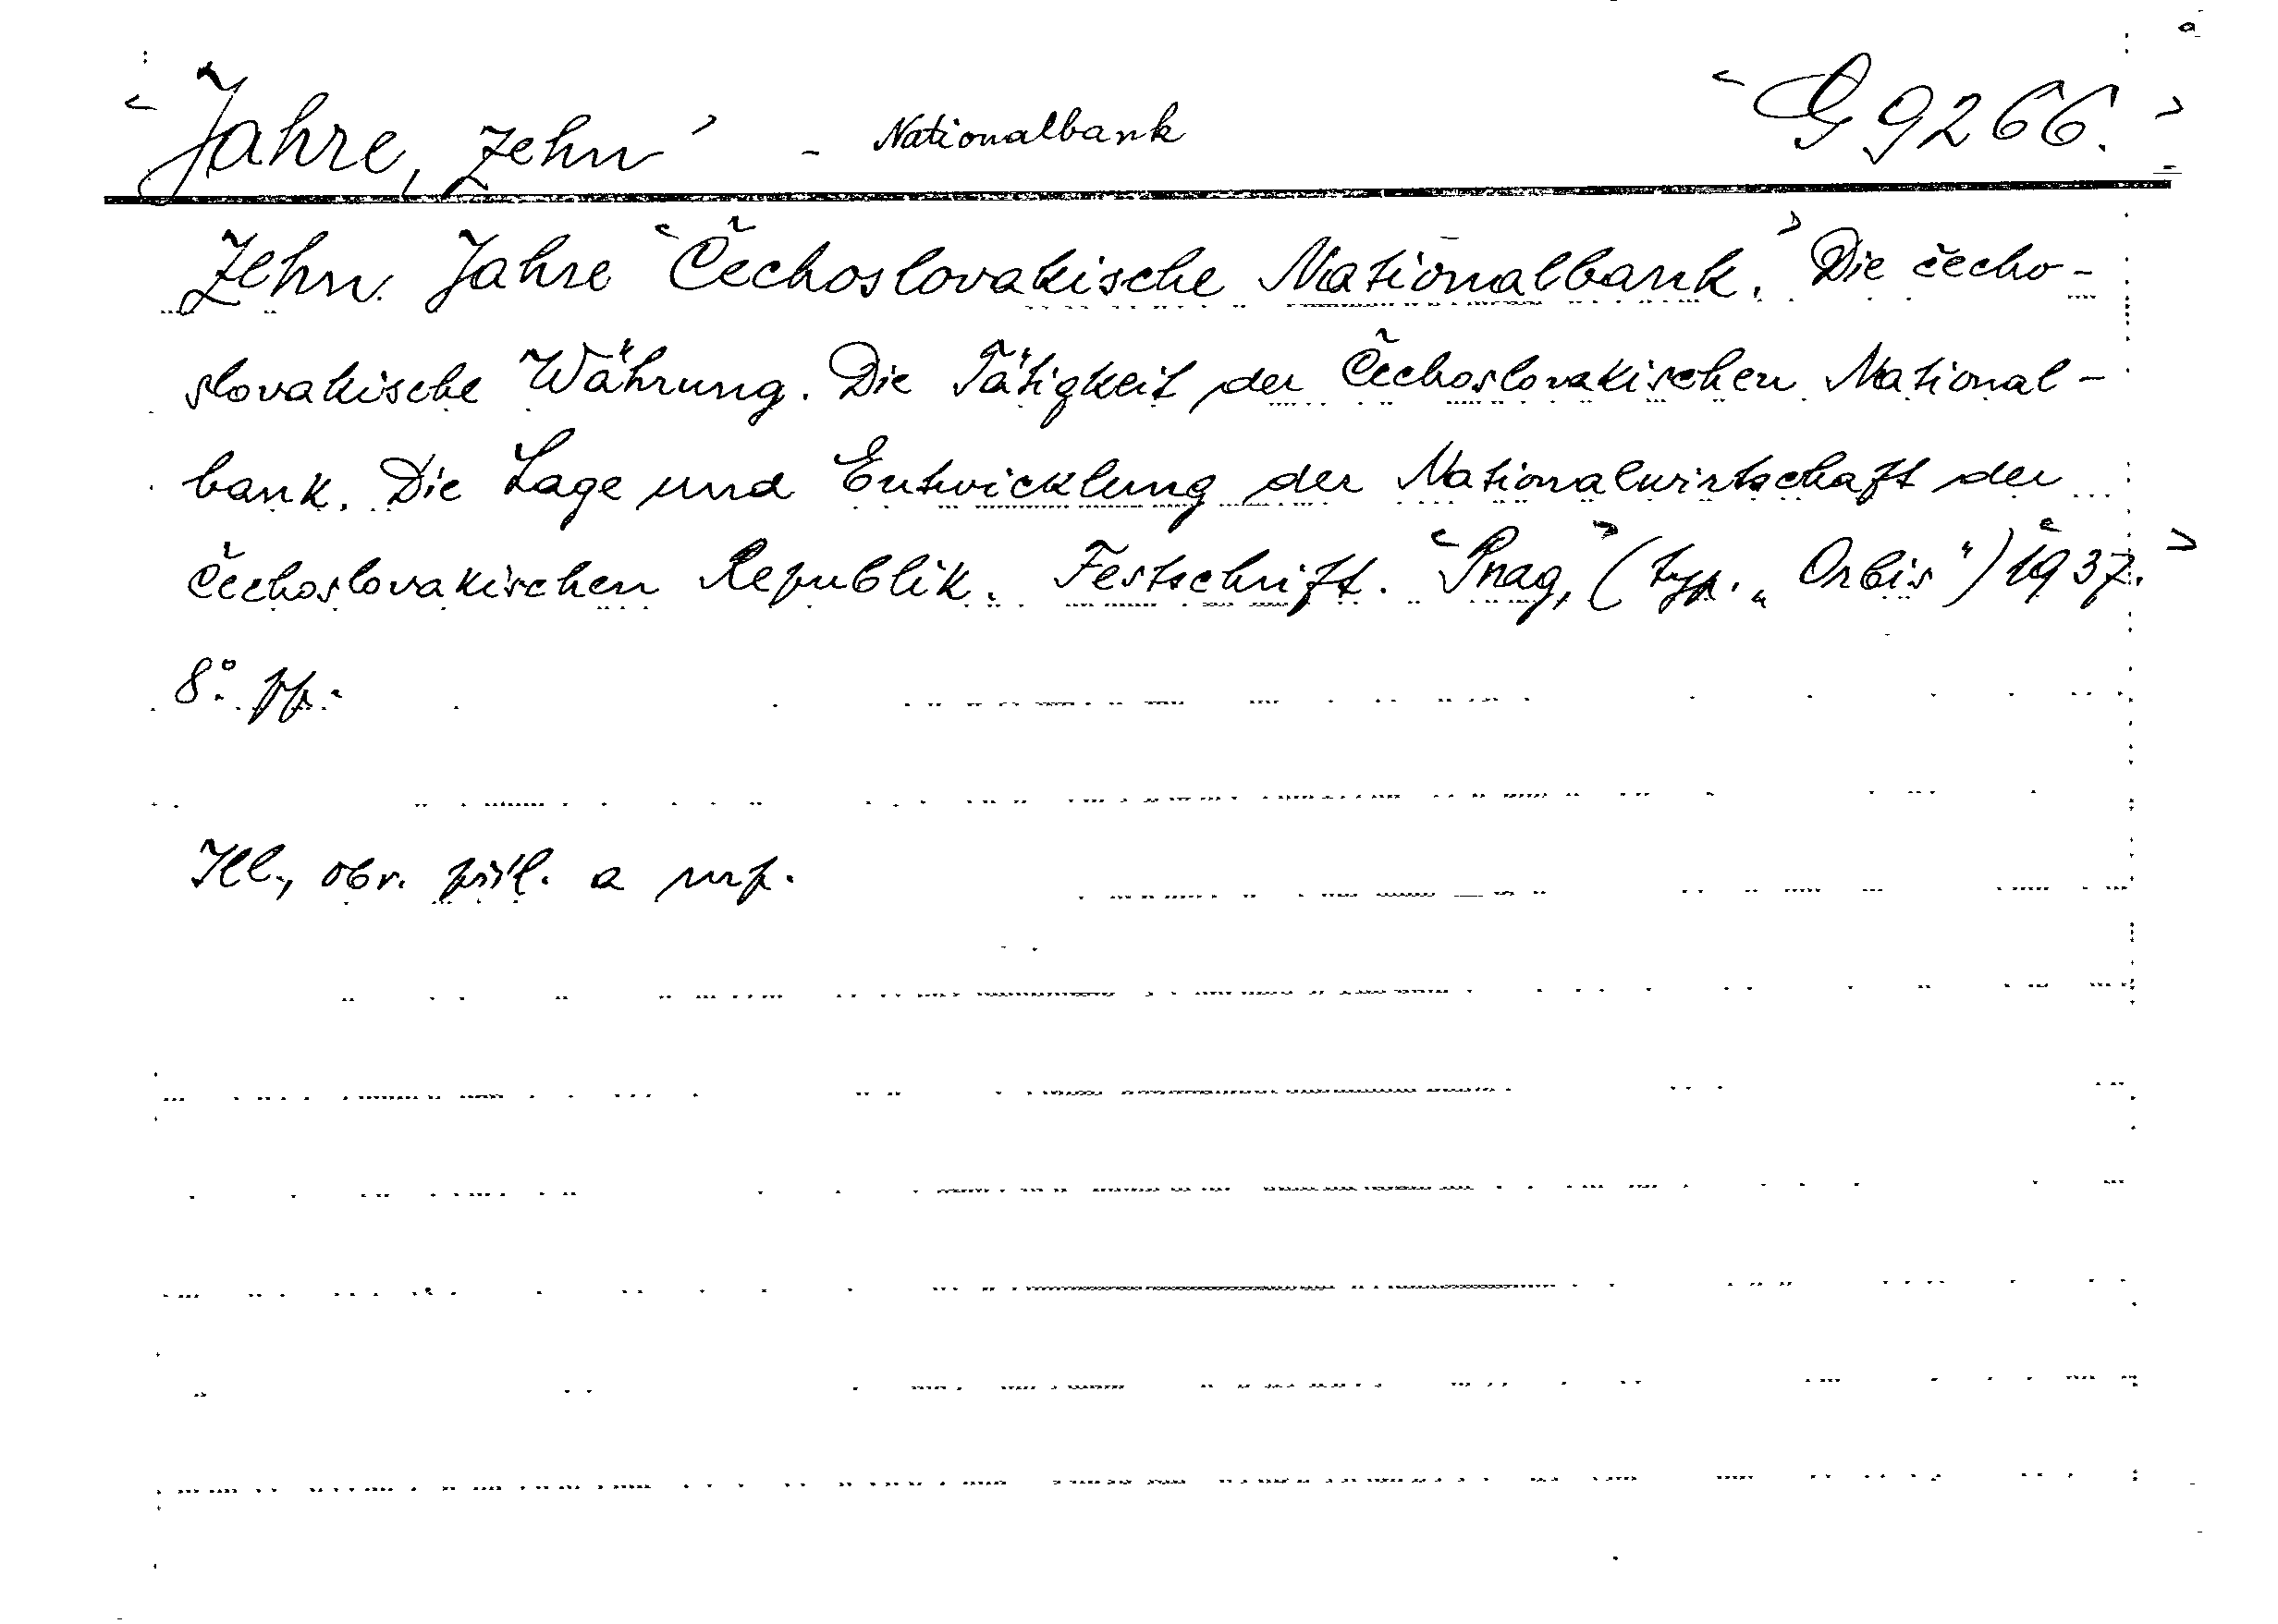 Jahre, zehn - Nationalbank G 9266.
Zehn Jahre Čechoslovakische Nationalbank. Die čecho-
slovakische Währung. Die Tätigkeit der Čechoslovakischen National-
bank. Die Lage und Entwicklung der Nationalwirtschaft der
Čechoslovakischen Republik. Festschrift. Prag, (typ. „Orbis“) 1937.
8°. pp.
Ill., obr. příl. a mp.